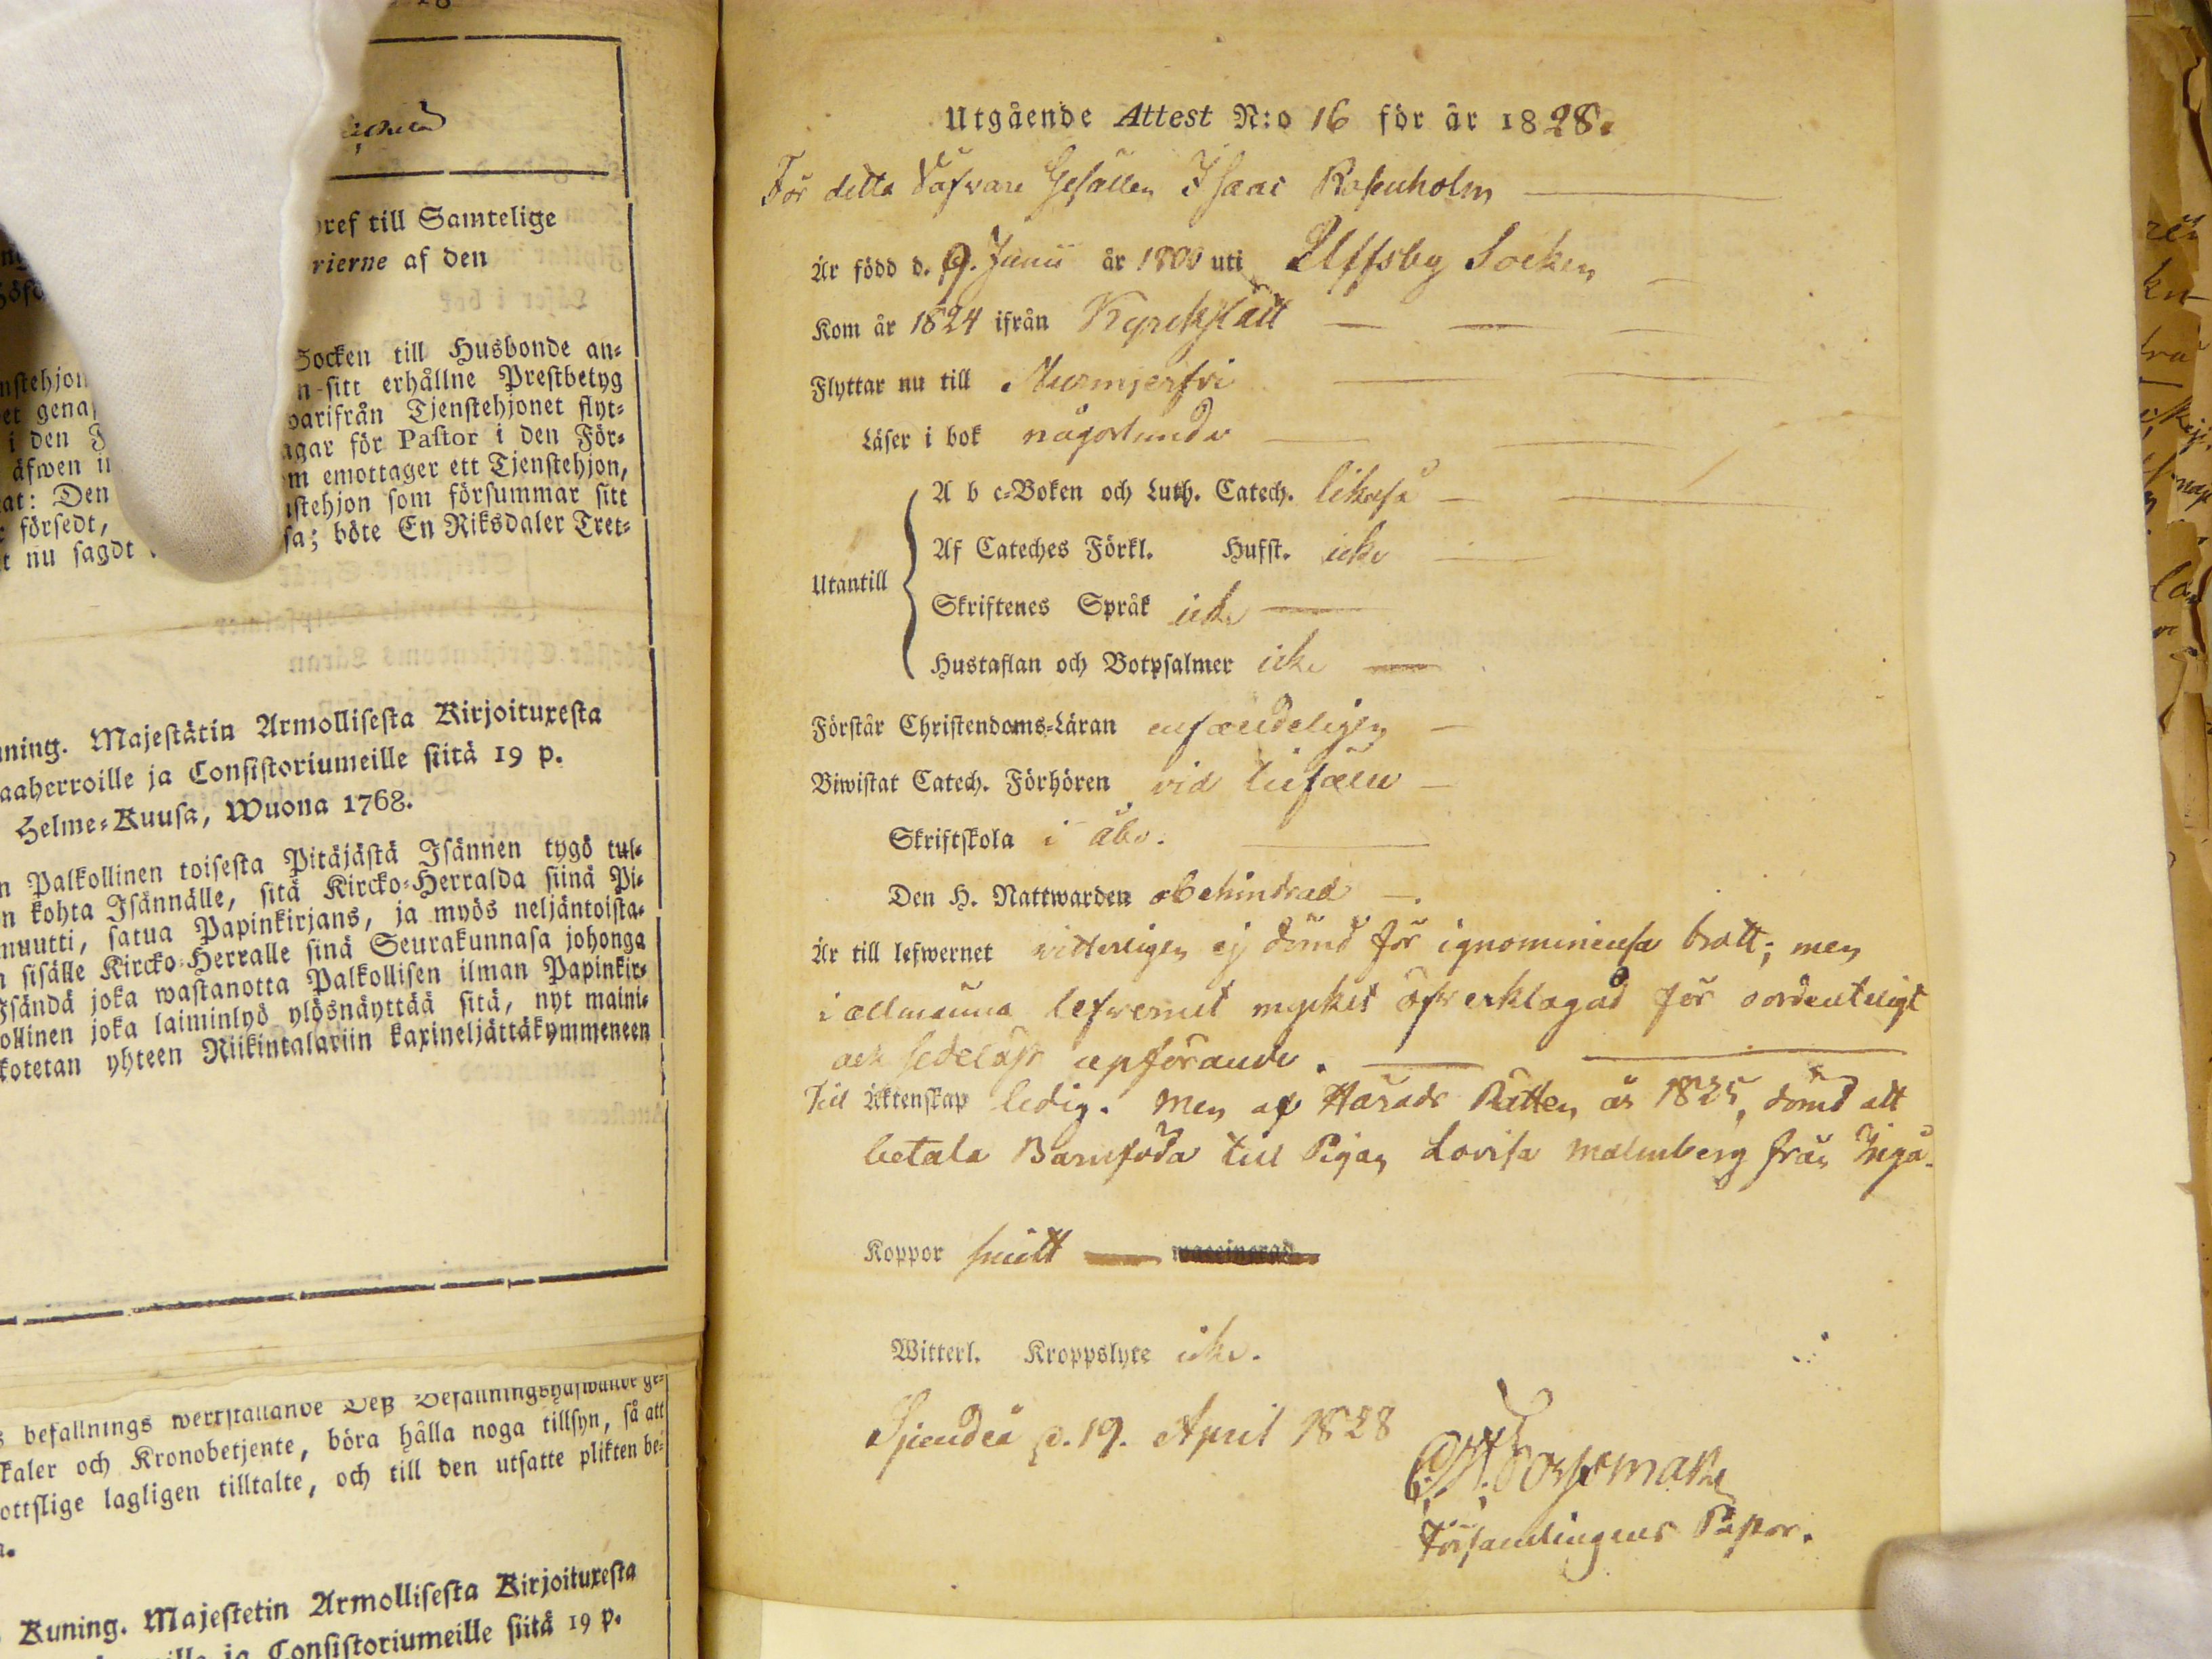 bref till Samtelige
rierne af den
Socken till Husbonde an-
nstehjon
n sitt erhållne Prestbetyg
et genas
varifrån Tjenstehjonet flyt-
i den
agar för Pastor i den För-
äfwen
m emottager ett Tjenstehjon,
at: Den
nstehjon som försummar sitt
försedt,
sa; böte En Riksdaler Tret-
t nu sagdt
ning. Majestätin Armollisesta Kirjoituxesta
aaherroille ja Consistoriumeille siitä 19 p.
Helme-Kuusa, Wuona 1768.
n Palkollinen toisesta Pitäjästä Isännen tygö tul-
n kohta Isännälle, sitä Kircko-Herralda siinä Pi-
muutti, satua Papinkirjans, ja myös neljäntoista-
n sisälle Kircko-Herralle sinä Seurakunnasa johonga
Isändä joka wastanotta Palkollisen ilman Papinkir-
ollinen joka laiminlyö ylösnäyttää sitä, nyt maini-
kotetan yhteen Riikintalariin kaxineljättäkymmeneen
s befallnings werkställande Deß Befallningshafwande ge-
kaler och Kronobetjente, böra hålla noga tillsyn, så att
ottslige lagligen tilltalte, och till den utsatte plikten be-
Kuning. Majestetin Armollisesta Kirjoituxesta
ille ja Consistoriumeille siitä 19 p.
Utgående Attest N:o 16 för år 1828.
För detta Gesällen Isaac Rosenholm
Är född d. 9. Junii år 1800 uti Ulfsby Socken
Kom år 1824 ifrån Kyrckslätt
Flyttar nu till Nurmjerfvi
Läser i bok någorlunda
Utantill
A b c-Boken och Luth. Catech. likaså
Af Cateches Förkl. Hufst. icke
Skriftenes Språk icke
Hustaflan och Botpsalmer icke
Förstår Christendoms-Läran enfaldeligen
Biwistat Catech. Förhören vid tilfälle
Skriftskola i Åbo.
Den H. Nattwarden obehindrad
Är till lefwernet vitterligen ej dömd för ignominieusa brott; men
i allmänna lefvernet mycket öfverklagad för oordenteligt
och sedelöst upförande.
Till Äktenskap ledig. Men af Härads Rätten år 1825, dömd att
betala Barnföda till Pigan Lovisa Malmberg från Ingå.
Koppor haft waccinerad
Witterl. Kroppslyte icke.
Sjundeå d. 19. April 1828
Församlingens Pastor.